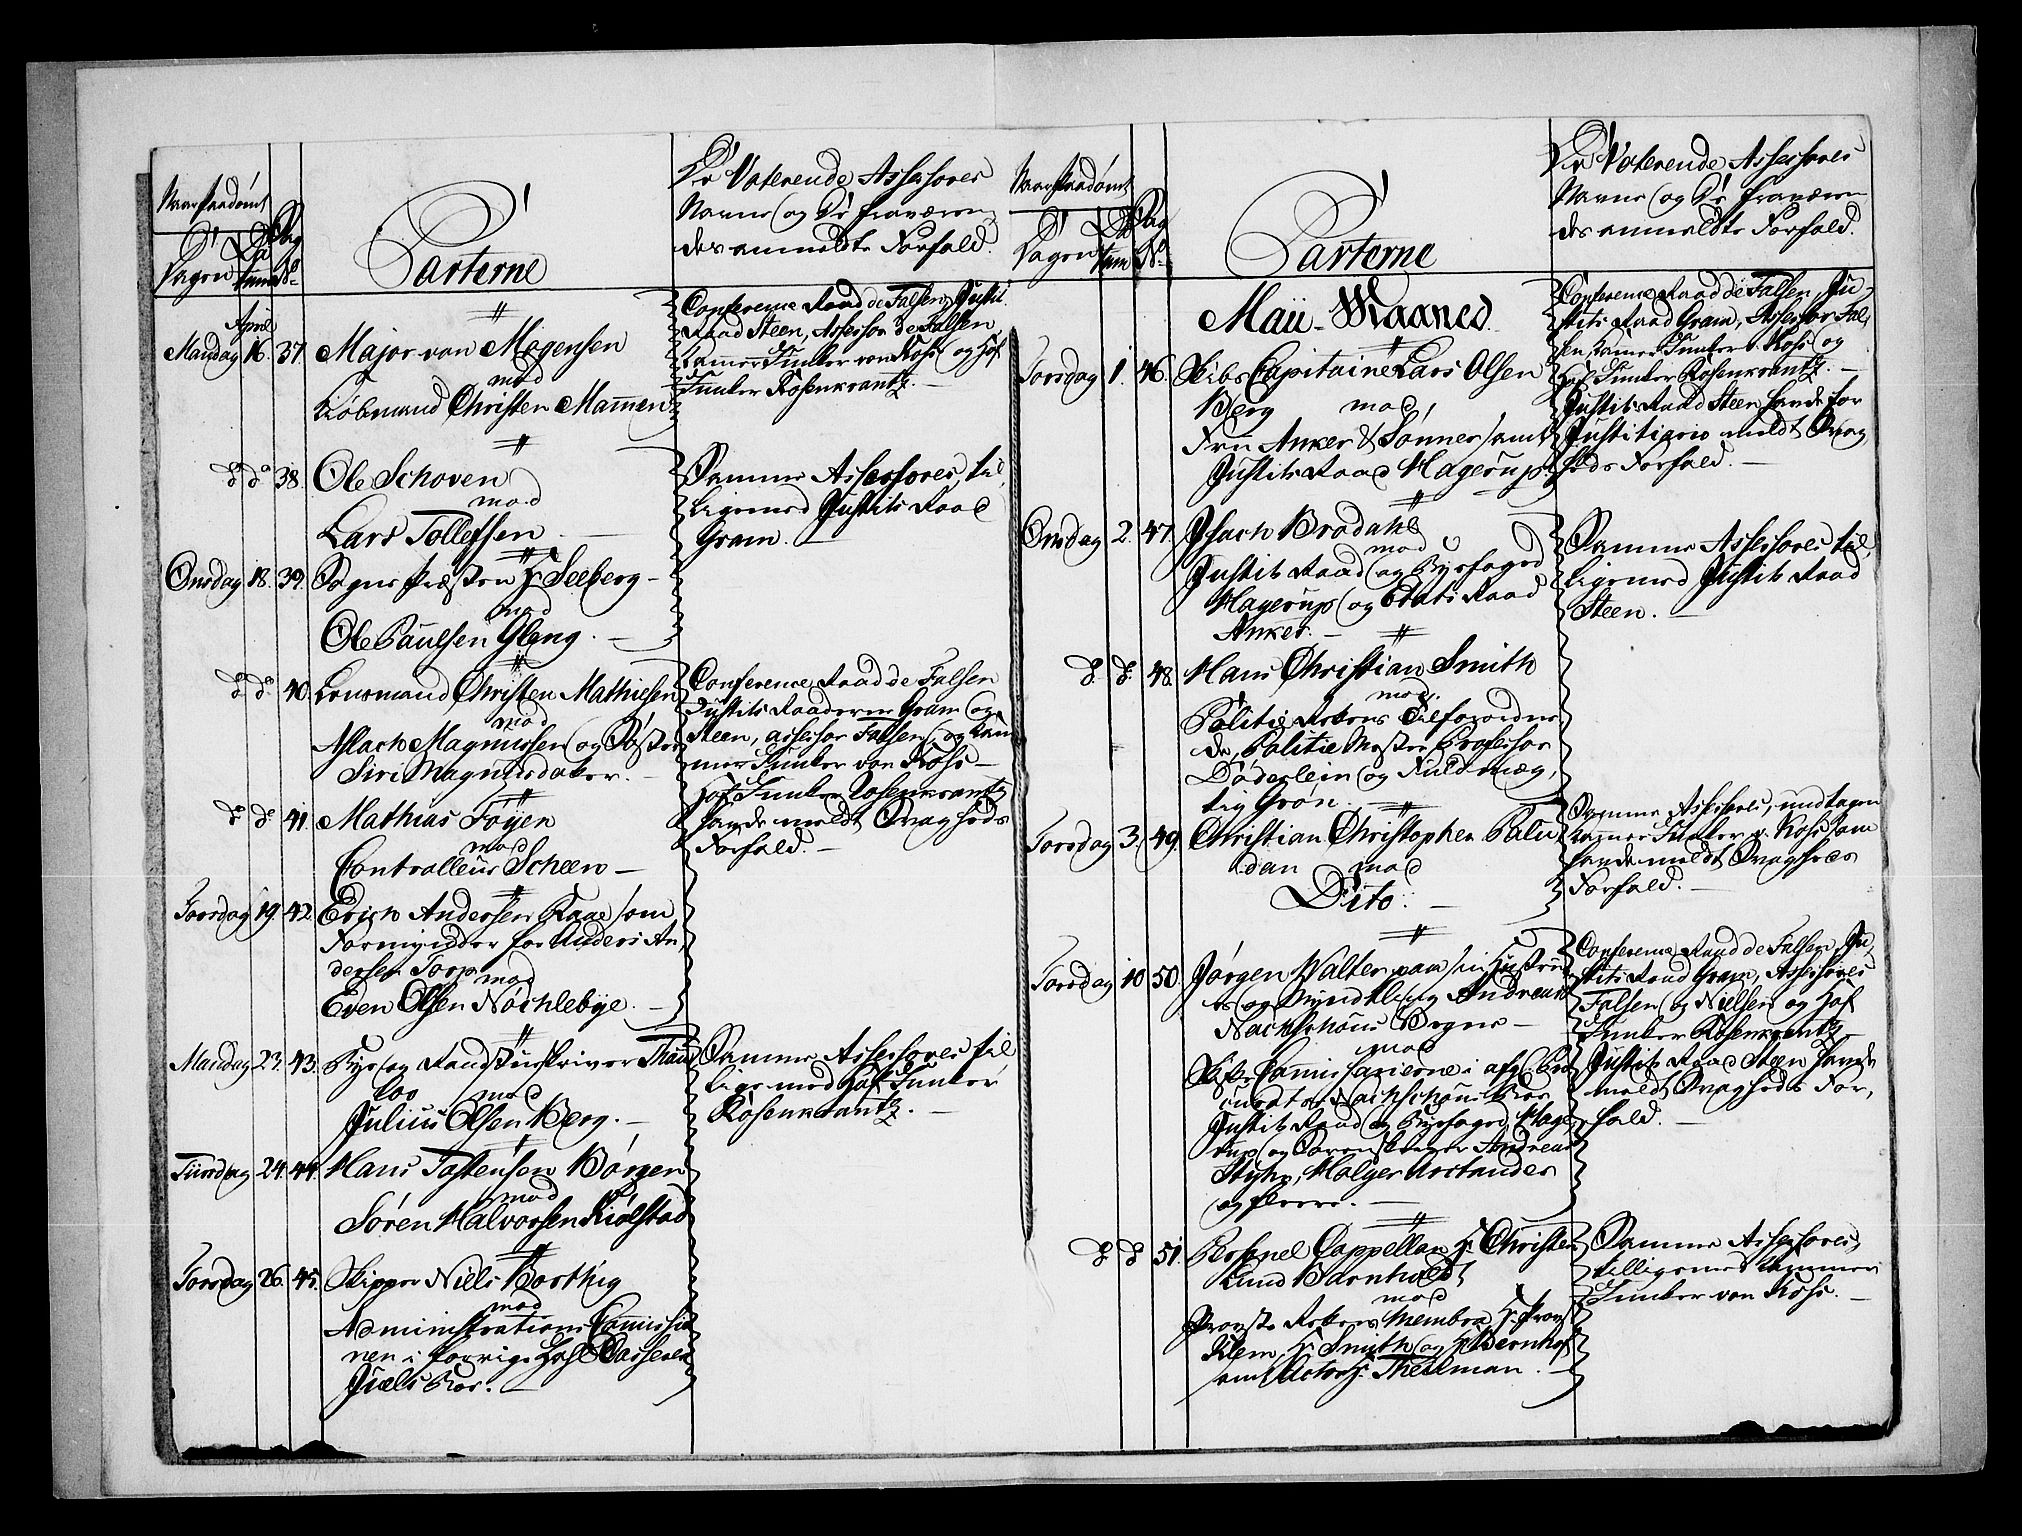 Naar Paadømt
Dagen
Da
tum
Sag
No
Parterne
De Voterende Assessores
Navne og De fraværen
des anmeldte Forfald.
April
Mandag 16. 37. Major von Mogensen
mod
Kiøbmand Christen Mamen
Conference Raad de Falsen, Justits
Raad Steen, Assessor de Falsen
Kamer Junker von Koss og Hof
Junker Rosenkrantz.
do do 38. Ole Schoven
mod
Lars Tollefsen
Samme Assessores, til
ligemed Justits Raad
Gram.
Onsdag 18. 39. Sogne Præsten Hr Seeberg
mod
Ole Paulsen Gleng.
do do 40. Lensmand Christen Mathiesen
mod
Aslach Magnussen og Søster
Siri Magnusdater.
Conference Raad de Falsen
Justits Raaderne Gram og
Steen, assessor Falsen og Kam
mer Junker von Koss
Hof Junker Rosenkrantz
havde meldt Svagheds
Forfald.
do do 41. Mathias Føyen
mod
Controlleur Scheen
Torsdag 19. 42. Erich Andersen Kaae som
Formynder for Anders An
dersen Torp
mod
Even Olsen Nochlebye.
Mandag 23. 43. Bye og Raadstueskriver Thau
low mod
Julius Olsen Berg.
Samme Assessores til
lige med Hof Junker
Rosenkrantz.
Tiirsdag 24. 44. Hans Tostensen Børgen
mod
Søren Halvorsen Kiølstad
Torsdag 26. 45. Skipper Niels Borthig
mod
Administrations Comissio
nen i forrige
Juels Boe.
Naar Paadømt
Dagen
Da
tum
Sag
No
Parterne
De Voterende Assessores
Navne og De fraværen
des anmeldte Forfald.
Maii Maaned.
Torsdag 1. 46. Skibs Capitaine Lars Olsen
Berg mod
Fru Anker & Sønner samt
Justits Raad Hagerup
Conference Raad de Falsen, Ju
stits Raad Gram, Assessor Fal
sen Kamer Junker v. Koss og
Hof Junker Rosenkrantz.
Justits Raad Steen havde for
Justitiario meldt Svag
heds Forfald.
Onsdag 2. 47. Isach Brodahl
mod
Justits Raad og Byefoged
Hagerup og Etats Raad
Anker.
Samme Assessores til
ligemed Justits Raad
Steen.
do do 48. Hans Christian Smith
mod
Politie Rettens Tilforordne
de, Politie Mester Professor
Døderlein og Fuldmæg,
tig Grøn.
Torsdag 3. 49. Christian Christopher Palu
dan mod
Dito.
Samme Assessores, undtagen
Kammer Junker v. Koss som
havde meldt Svagheds
Forfald.
Torsdag 10 50. Jørgen Walter paa sin Hustrue
s og Myndtlig Andreas
Nachschous Vegne
mod
Skifte Commissarierne i
Nachschous Boe
Justits Raad og Byefoged Hage
rup og Sorenskriver Andreas
Styhr, Holger Aastander
og fleere.
Conference Raad de Falsen, Ju
stits Raad Gram, Assessores
Falsen og Nielsen og Hof
Junker Rosenkrantz
Justits Raad Steen havde
meldt Svagheds For,
fald.
do do 51. Personel Cappellan Hr Christen
Lund Barnholdt
mod
Provste Rettens Membra, Hr Provst
Klem, Hr Smith og Hr Bernhof
samt Actor Hr Theilman.
Samme Assessores,
tilligemed Kammer
Junker von Koss.